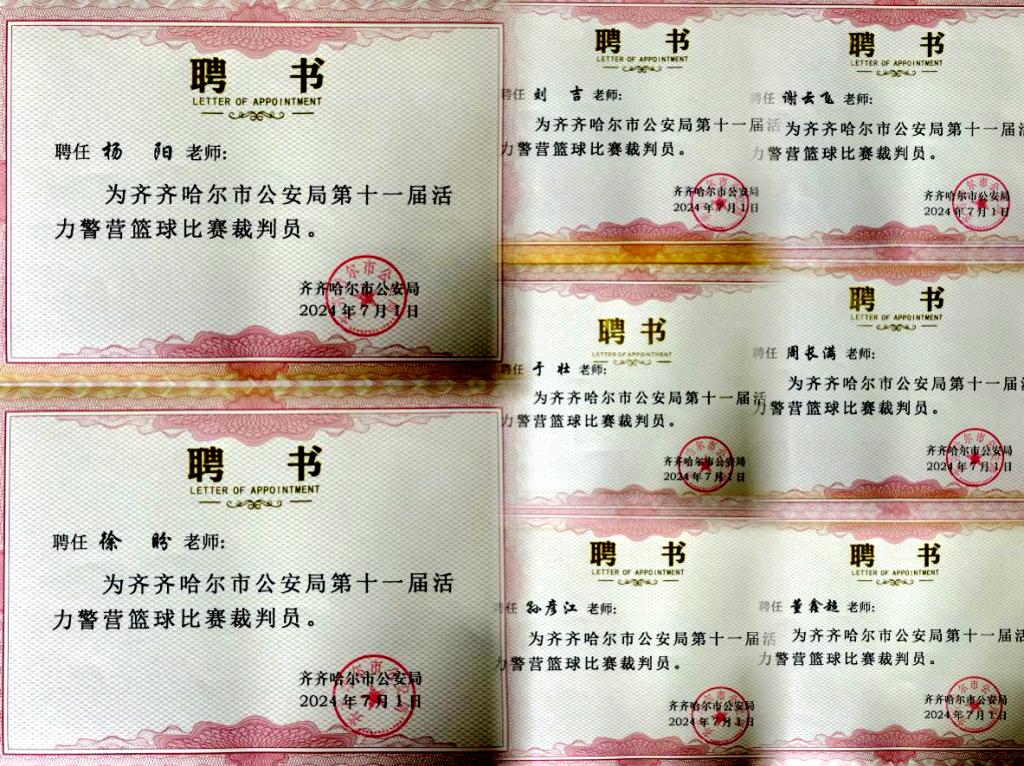 聘 书
LETTER OF APPOINTMENT
聘任 杨 阳 老师:
为齐齐哈尔市公安局第十一届活
力警营篮球比赛裁判员。
齐齐哈尔市公安局
2024年7月1日
聘 书
LETTER OF APPOINTMENT
聘任 徐 盼 老师:
为齐齐哈尔市公安局第十一届活
力警营篮球比赛裁判员。
齐齐哈尔市公安局
2024年7月1日
聘 书
LETTER OF APPOINTMENT
聘任 刘 吉 老师:
为齐齐哈尔市公安局第十一届活
力警营篮球比赛裁判员。
齐齐哈尔市公安局
2024年7月1日
聘 书
LETTER OF APPOINTMENT
聘任 谢云飞 老师:
为齐齐哈尔市公安局第十一届活
力警营篮球比赛裁判员。
齐齐哈尔市公安局
2024年7月1日
聘 书
LETTER OF APPOINTMENT
聘任 于 壮 老师:
为齐齐哈尔市公安局第十一届活
力警营篮球比赛裁判员。
齐齐哈尔市公安局
2024年7月1日
聘 书
LETTER OF APPOINTMENT
聘任 周长满 老师:
为齐齐哈尔市公安局第十一届活
力警营篮球比赛裁判员。
齐齐哈尔市公安局
2024年7月1日
聘 书
LETTER OF APPOINTMENT
聘任 孙彦江 老师:
为齐齐哈尔市公安局第十一届活
力警营篮球比赛裁判员。
齐齐哈尔市公安局
2024年7月1日
聘 书
LETTER OF APPOINTMENT
聘任 董鑫超 老师:
为齐齐哈尔市公安局第十一届活
力警营篮球比赛裁判员。
齐齐哈尔市公安局
2024年7月1日